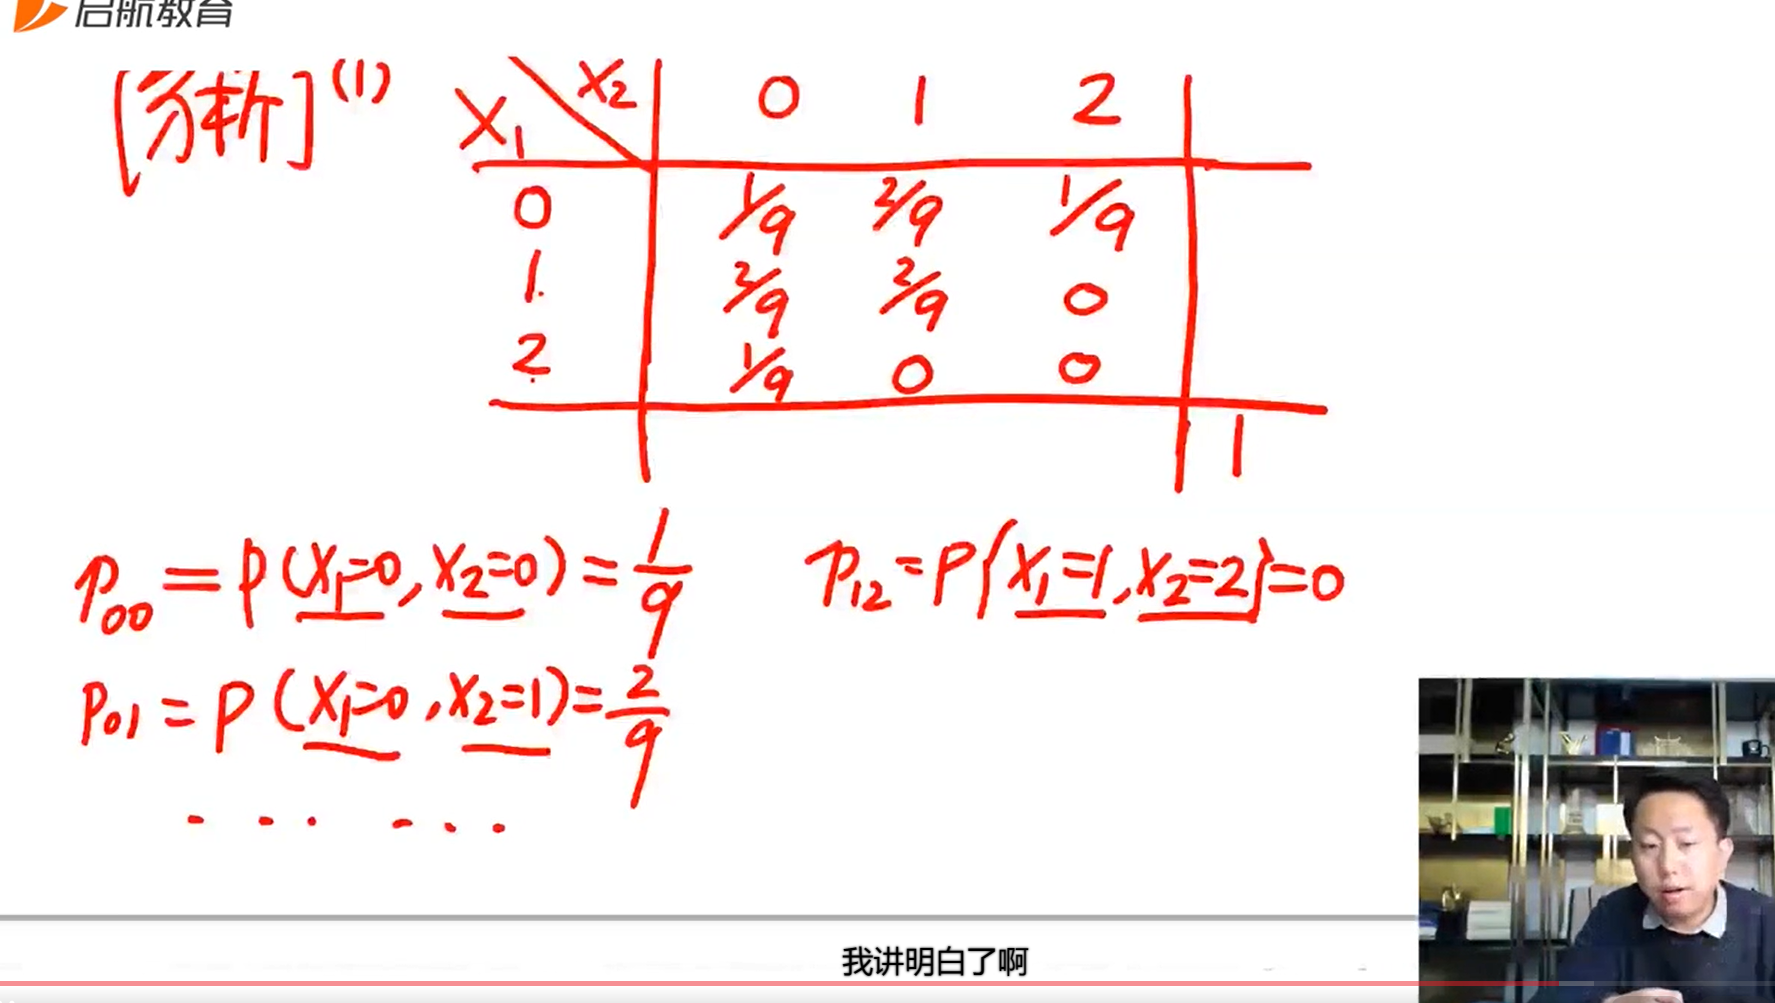 启航教育
[分析](1)
X₁ X₂ 0 1 2
0 1/9 2/9 1/9
1 2/9 2/9 0
2 1/9 0 0
1
P₀₀ = P(X₁=0, X₂=0) = 1/9
P₁₂ = P{X₁=1, X₂=2} = 0
P₀₁ = P(X₁=0, X₂=1) = 2/9
... ...
我讲明白了啊